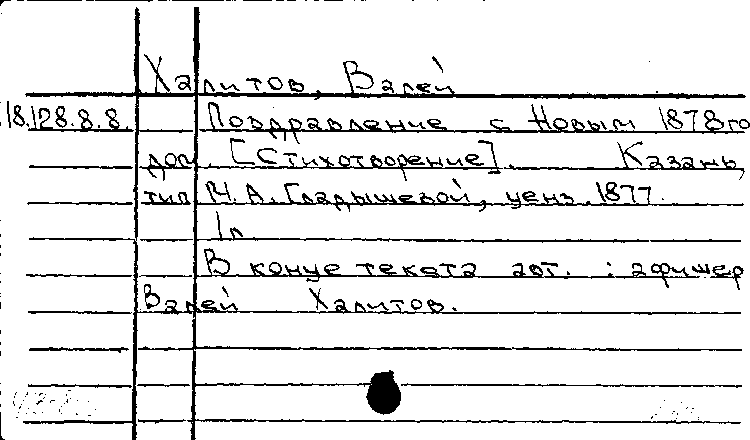 Халитов, Валей
18.128.8.8. Поздравление с Новым 1878 го
дом. [Стихотворение]. Казань,
тип М.А. Гладышевой, ценз. 1877.
1л.
В конце текста авт. : афишер
Валей Халитов.